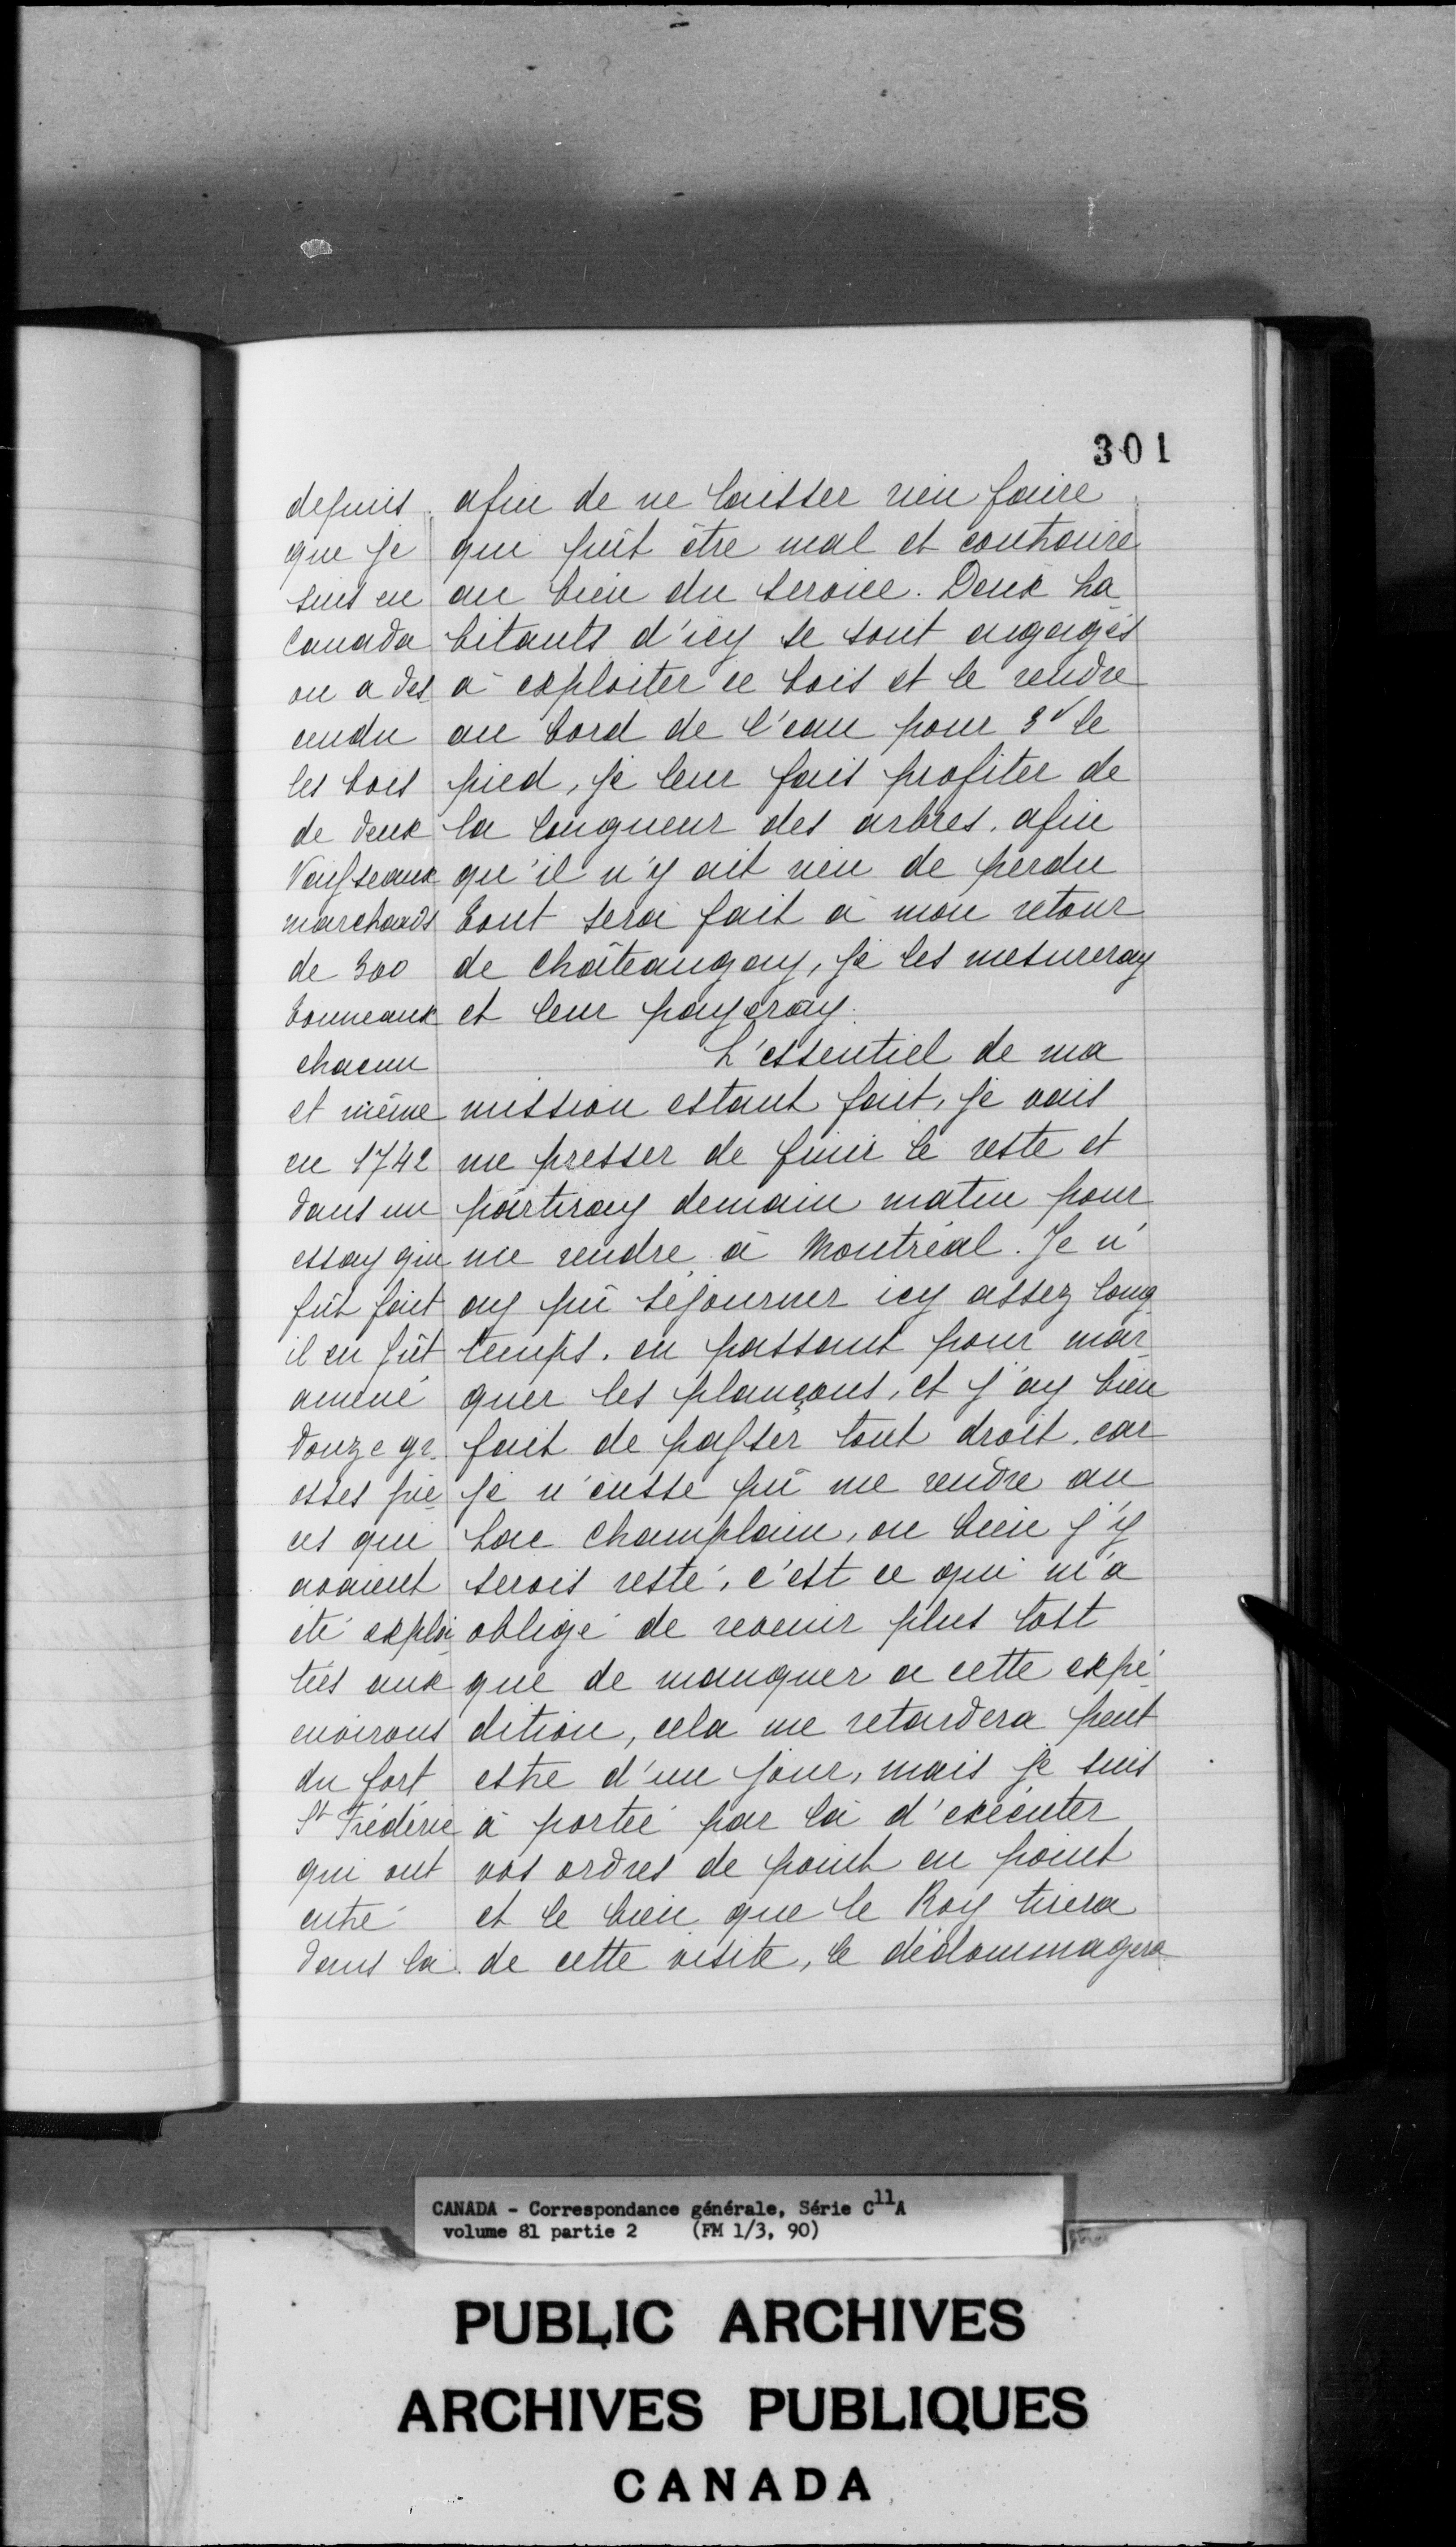 301
depuis
que je
suis en
Canada
on a des
cendu
les bois
de deux
Vaisseaux
marchands
de 300
tonneaux
chacun
et même
en 1742
dans un
essay qui
fût fait
il en fût
amené
douze gr
osses piè
ces qui
avaient
été exploi
tées aux
environs
du fort
St Frédéric
qui ont
entré
dans la
afin de ne laisser rien faire
qui pût être mal et contraire
au bien du service. Deux ha
bitants d'icy se sont engagés
à exploiter ce bois et le rendre
au bord de l'eau pour 3s le
pied, je leur fais profiter de
la longueur des arbres, afin
qu'il n'y ait rien de perdu
tout sera fait à mon retour
de Châteaugay, je les mesureray
et leur payeray.
L'essentiel de ma
mission estant fait, je vais
me presser de finir le reste et
partiray demain matin pour
me rendre à Montréal. Je n'
ay pû séjourner icy assez long
temps, en passant pour mar
quer les plançons, et j'ay bien
fait de passer tout droit, car
je n'eusse pû me rendre au
Lac Champlain, ou bien j'y
serois resté, c'est ce qui m'a
obligé de revenir plus tost
que de manquer a cette expé
dition, cela me retardera peut
estre d'un jour, mais je suis
à porteé par là d'executer
vos ordres de point en point
et le bien que le Roy tirera
de cette visite, le dédommagera
CANADA - Correspondance générale, Série C11A
volume 81 partie 2 (FM 1/3, 90)
PUBLIC ARCHIVES
ARCHIVES PUBLIQUES
CANADA